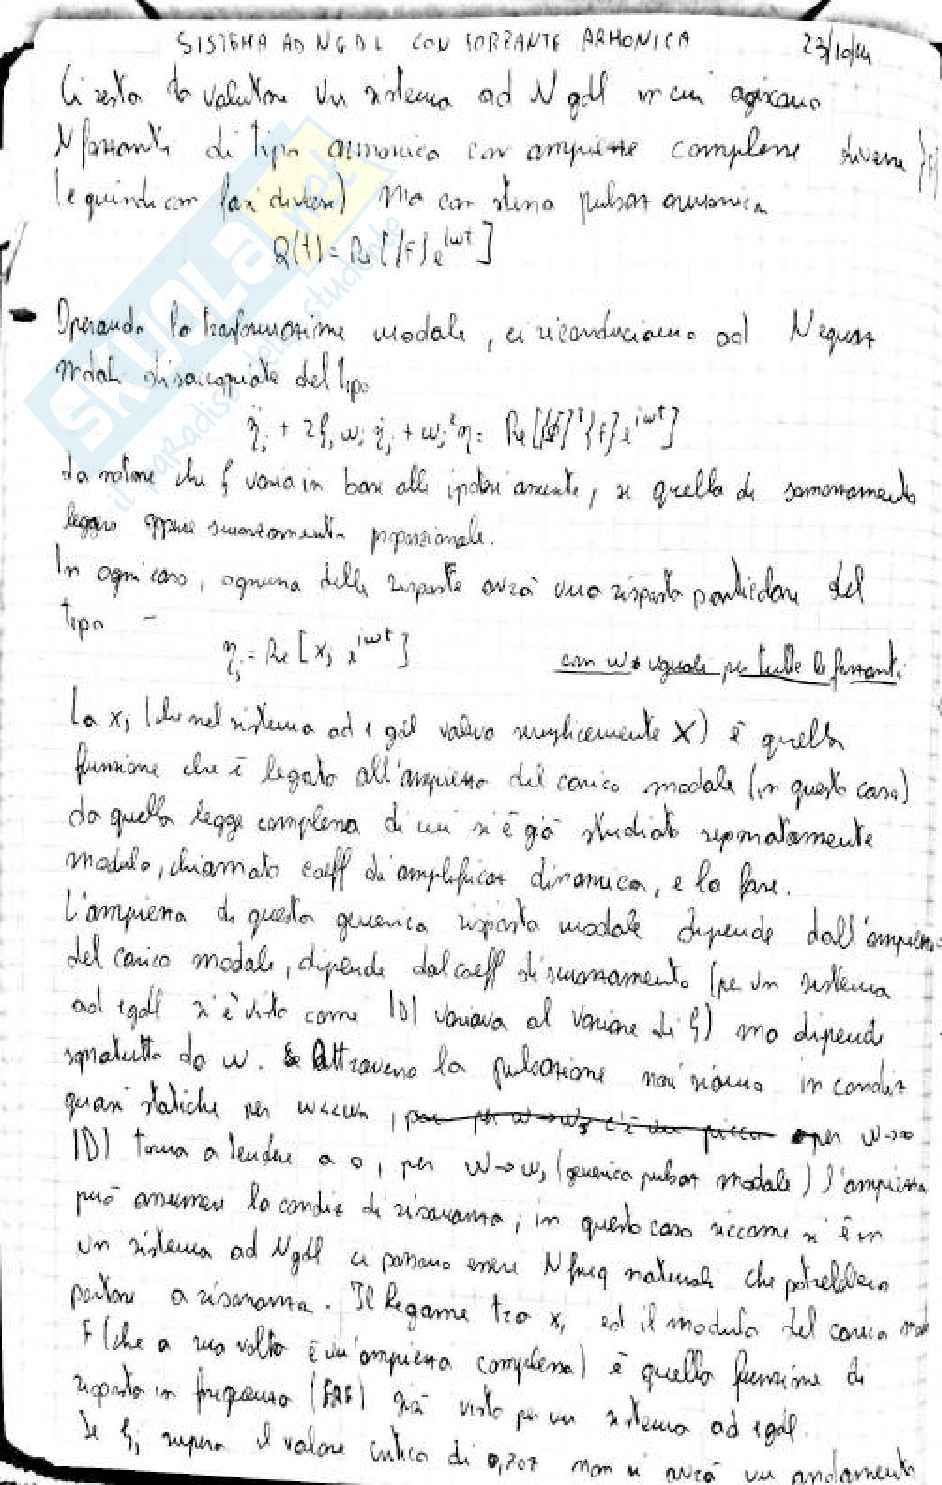 SISTEMA AD N G D L CON FORZANTE ARMONICA 23/10/14
Ci resta da valutare un sistema ad N gdl in cui agiscano
N forzanti di tipo armonico con ampiezze complesse diverse {F}
(e quindi con fasi diverse) ma con stessa pulsaz armonica
Q(t) = Re[{F} e^iωt]
Operando la trasformazione modale, ci riconduciamo ad N equaz
modali disaccoppiate del tipo
η̈j + 2ξj ωj η̇j + ωj² η = Re[[ϕ]ᵀ{F} e^iωt]
da notare che ξ varia in base alle ipotesi assunte, se quella di smorzamento
leggero oppure smorzamento proporzionale.
In ogni caso, ognuna delle risposte avrà una risposta particolare del
tipo -
ηj = Re [xj e^iωt]
con ω uguale per tutte le forzanti
La xj (che nel sistema ad 1 gdl valeva semplicemente X) è quella
funzione che è legata all'ampiezza del carico modale (in questo caso)
da quella legge complessa di cui si è già studiato separatamente
modulo, chiamato coeff di amplificaz dinamica, e la fase.
L'ampiezza di questa generica risposta modale dipende dall'ampiezza
del carico modale, dipende dal coeff di smorzamento (per un sistema
ad 1gdl si è visto come |D| variava al variare di ξ) ma dipende
sopratutto da ω. Attraverso la pulsazione noi siamo in condiz
quasi statiche per ω<<ωn, per ω→∞
|D| torna a tendere a 0, per ω→ωj (generica pulsaz modale) l'ampiezza
può assumere la condiz di risonanza; in questo caso siccome si è in
un sistema ad Ngdl ci possono essere N freq naturali che potrebbero
portare a risonanza. Il legame tra xj ed il modulo del carico
F (che a sua volta è un'ampiezza complessa) è quella funzione di
risposta in frequenza (FRF) già vista per un sistema ad 1gdl.
Se ξj supera il valore critico di 0,707 non si avrà un andamento